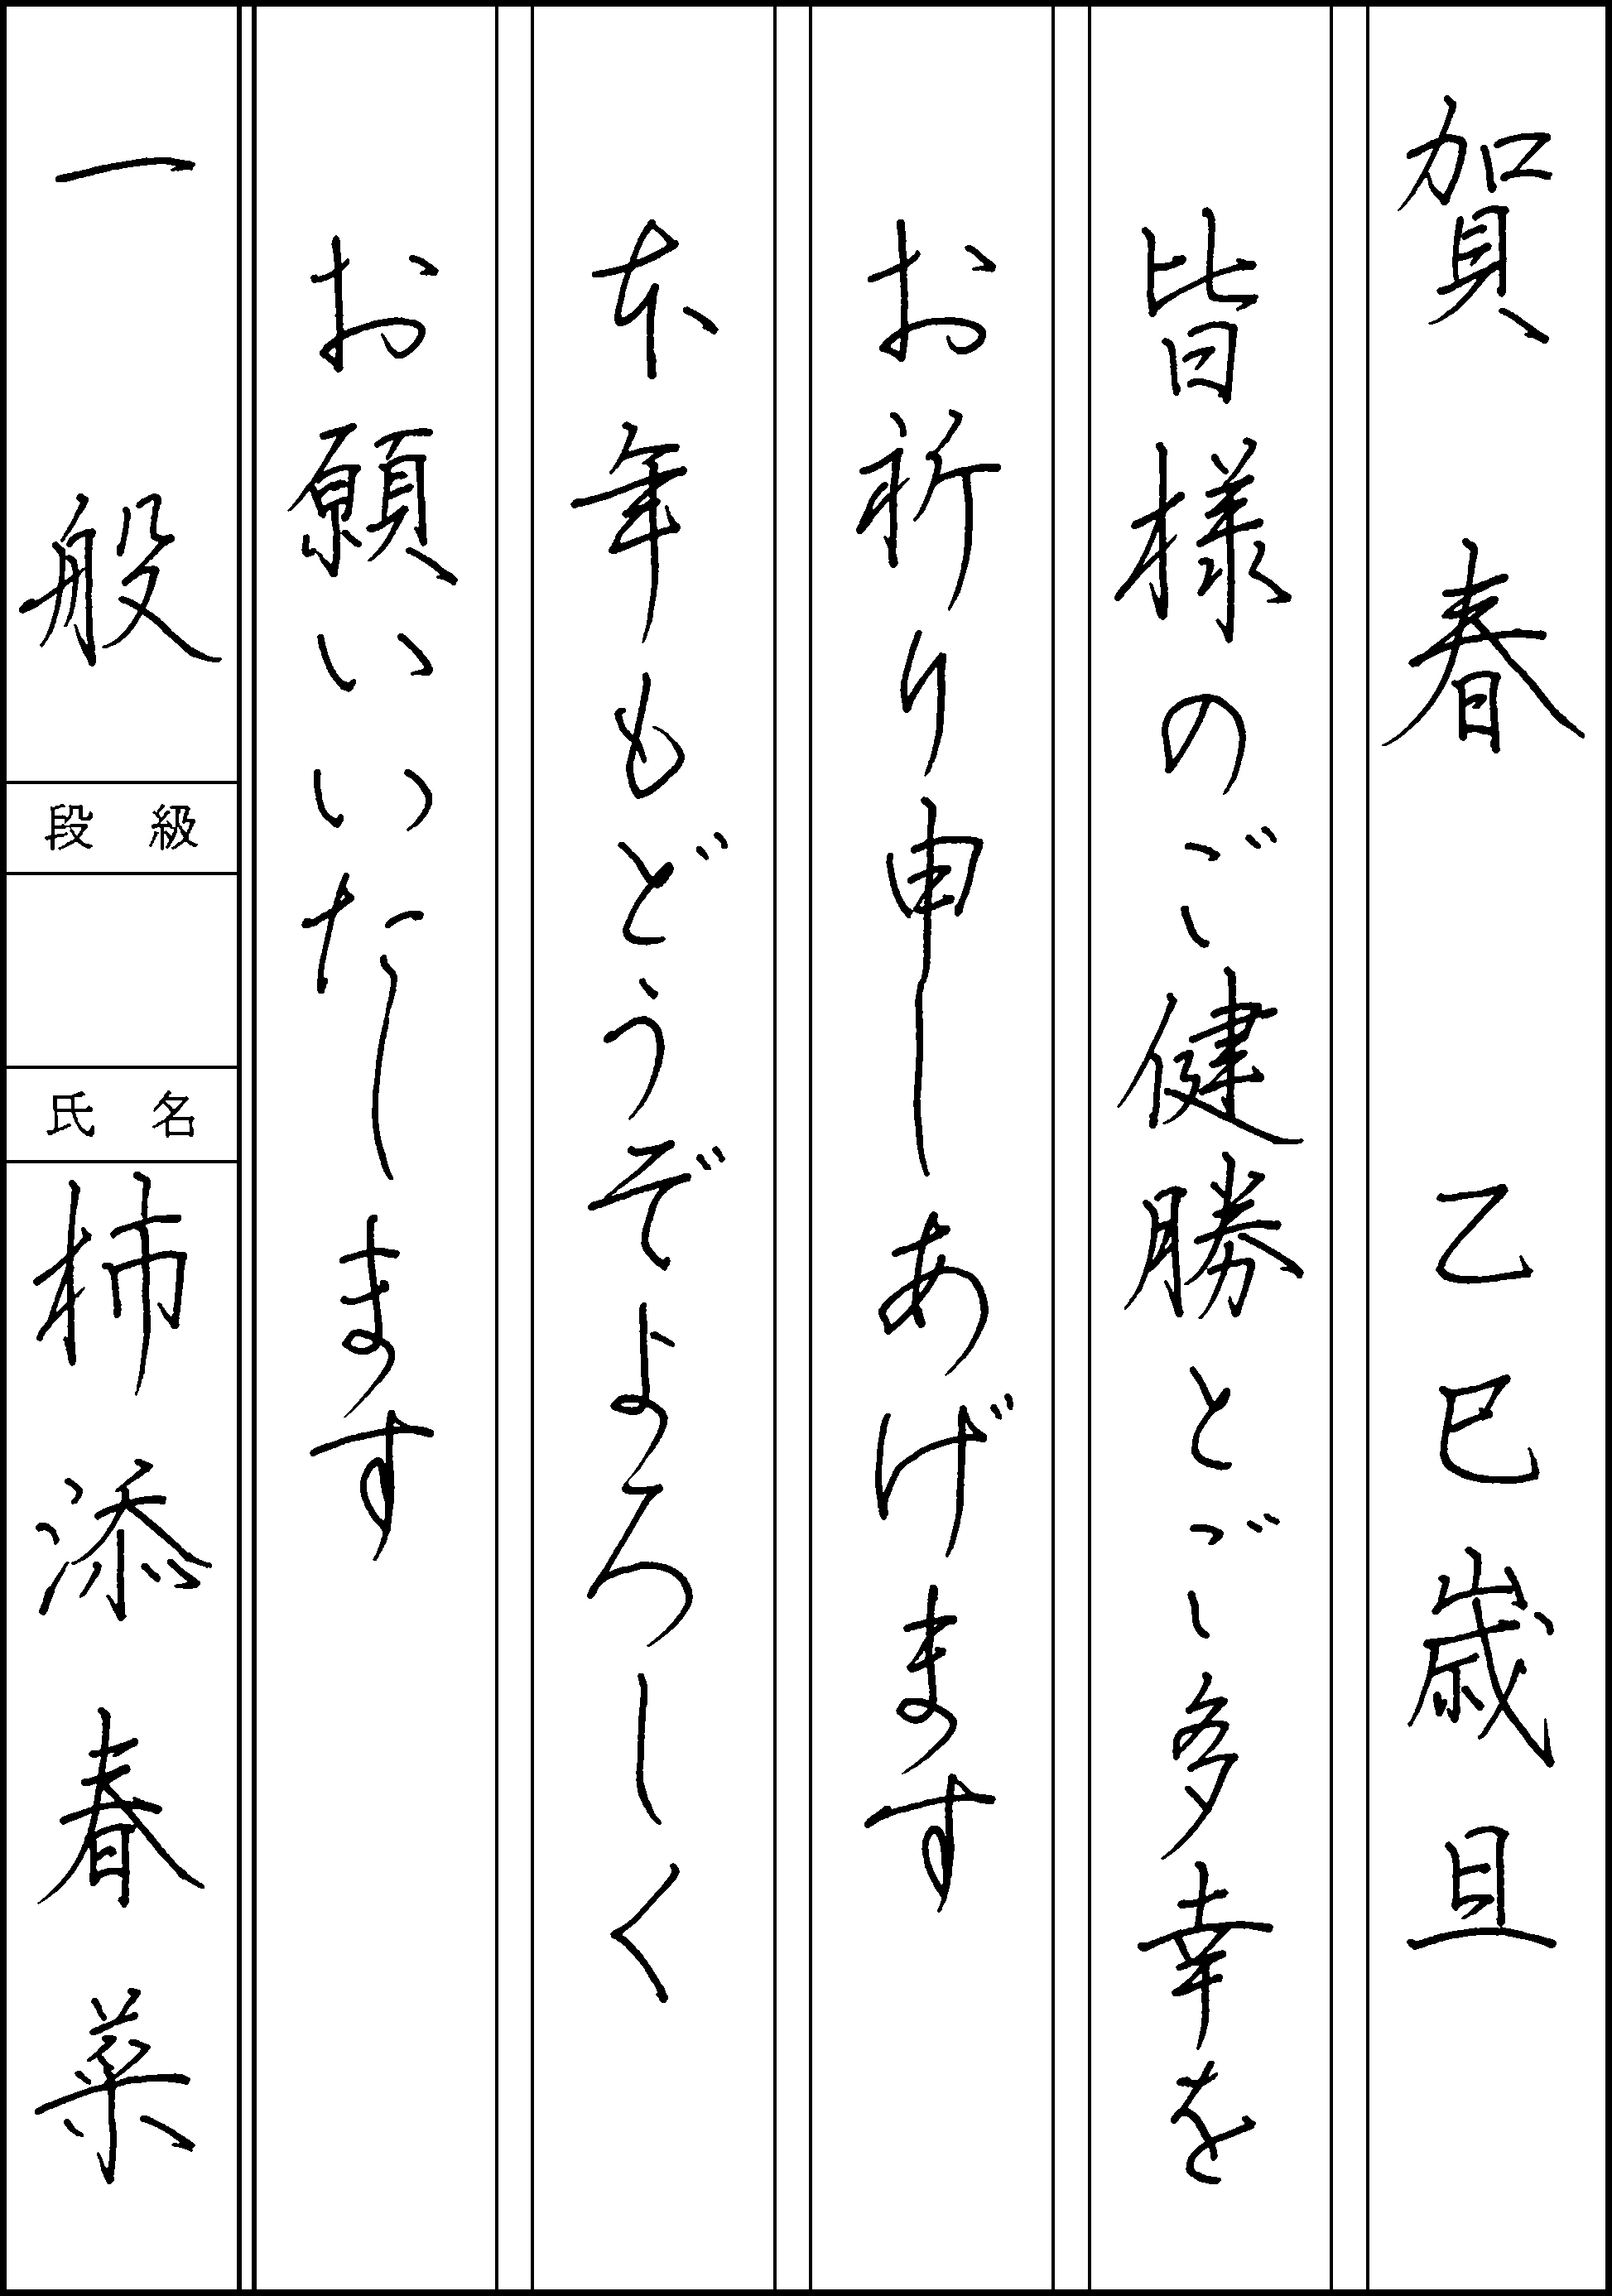 賀春 乙巳歳旦
皆様のご健勝とご多幸を
お祈り申しあげます
本年もどうぞよろしく
お願いいたします
一般
段級
氏名
柿添春菜